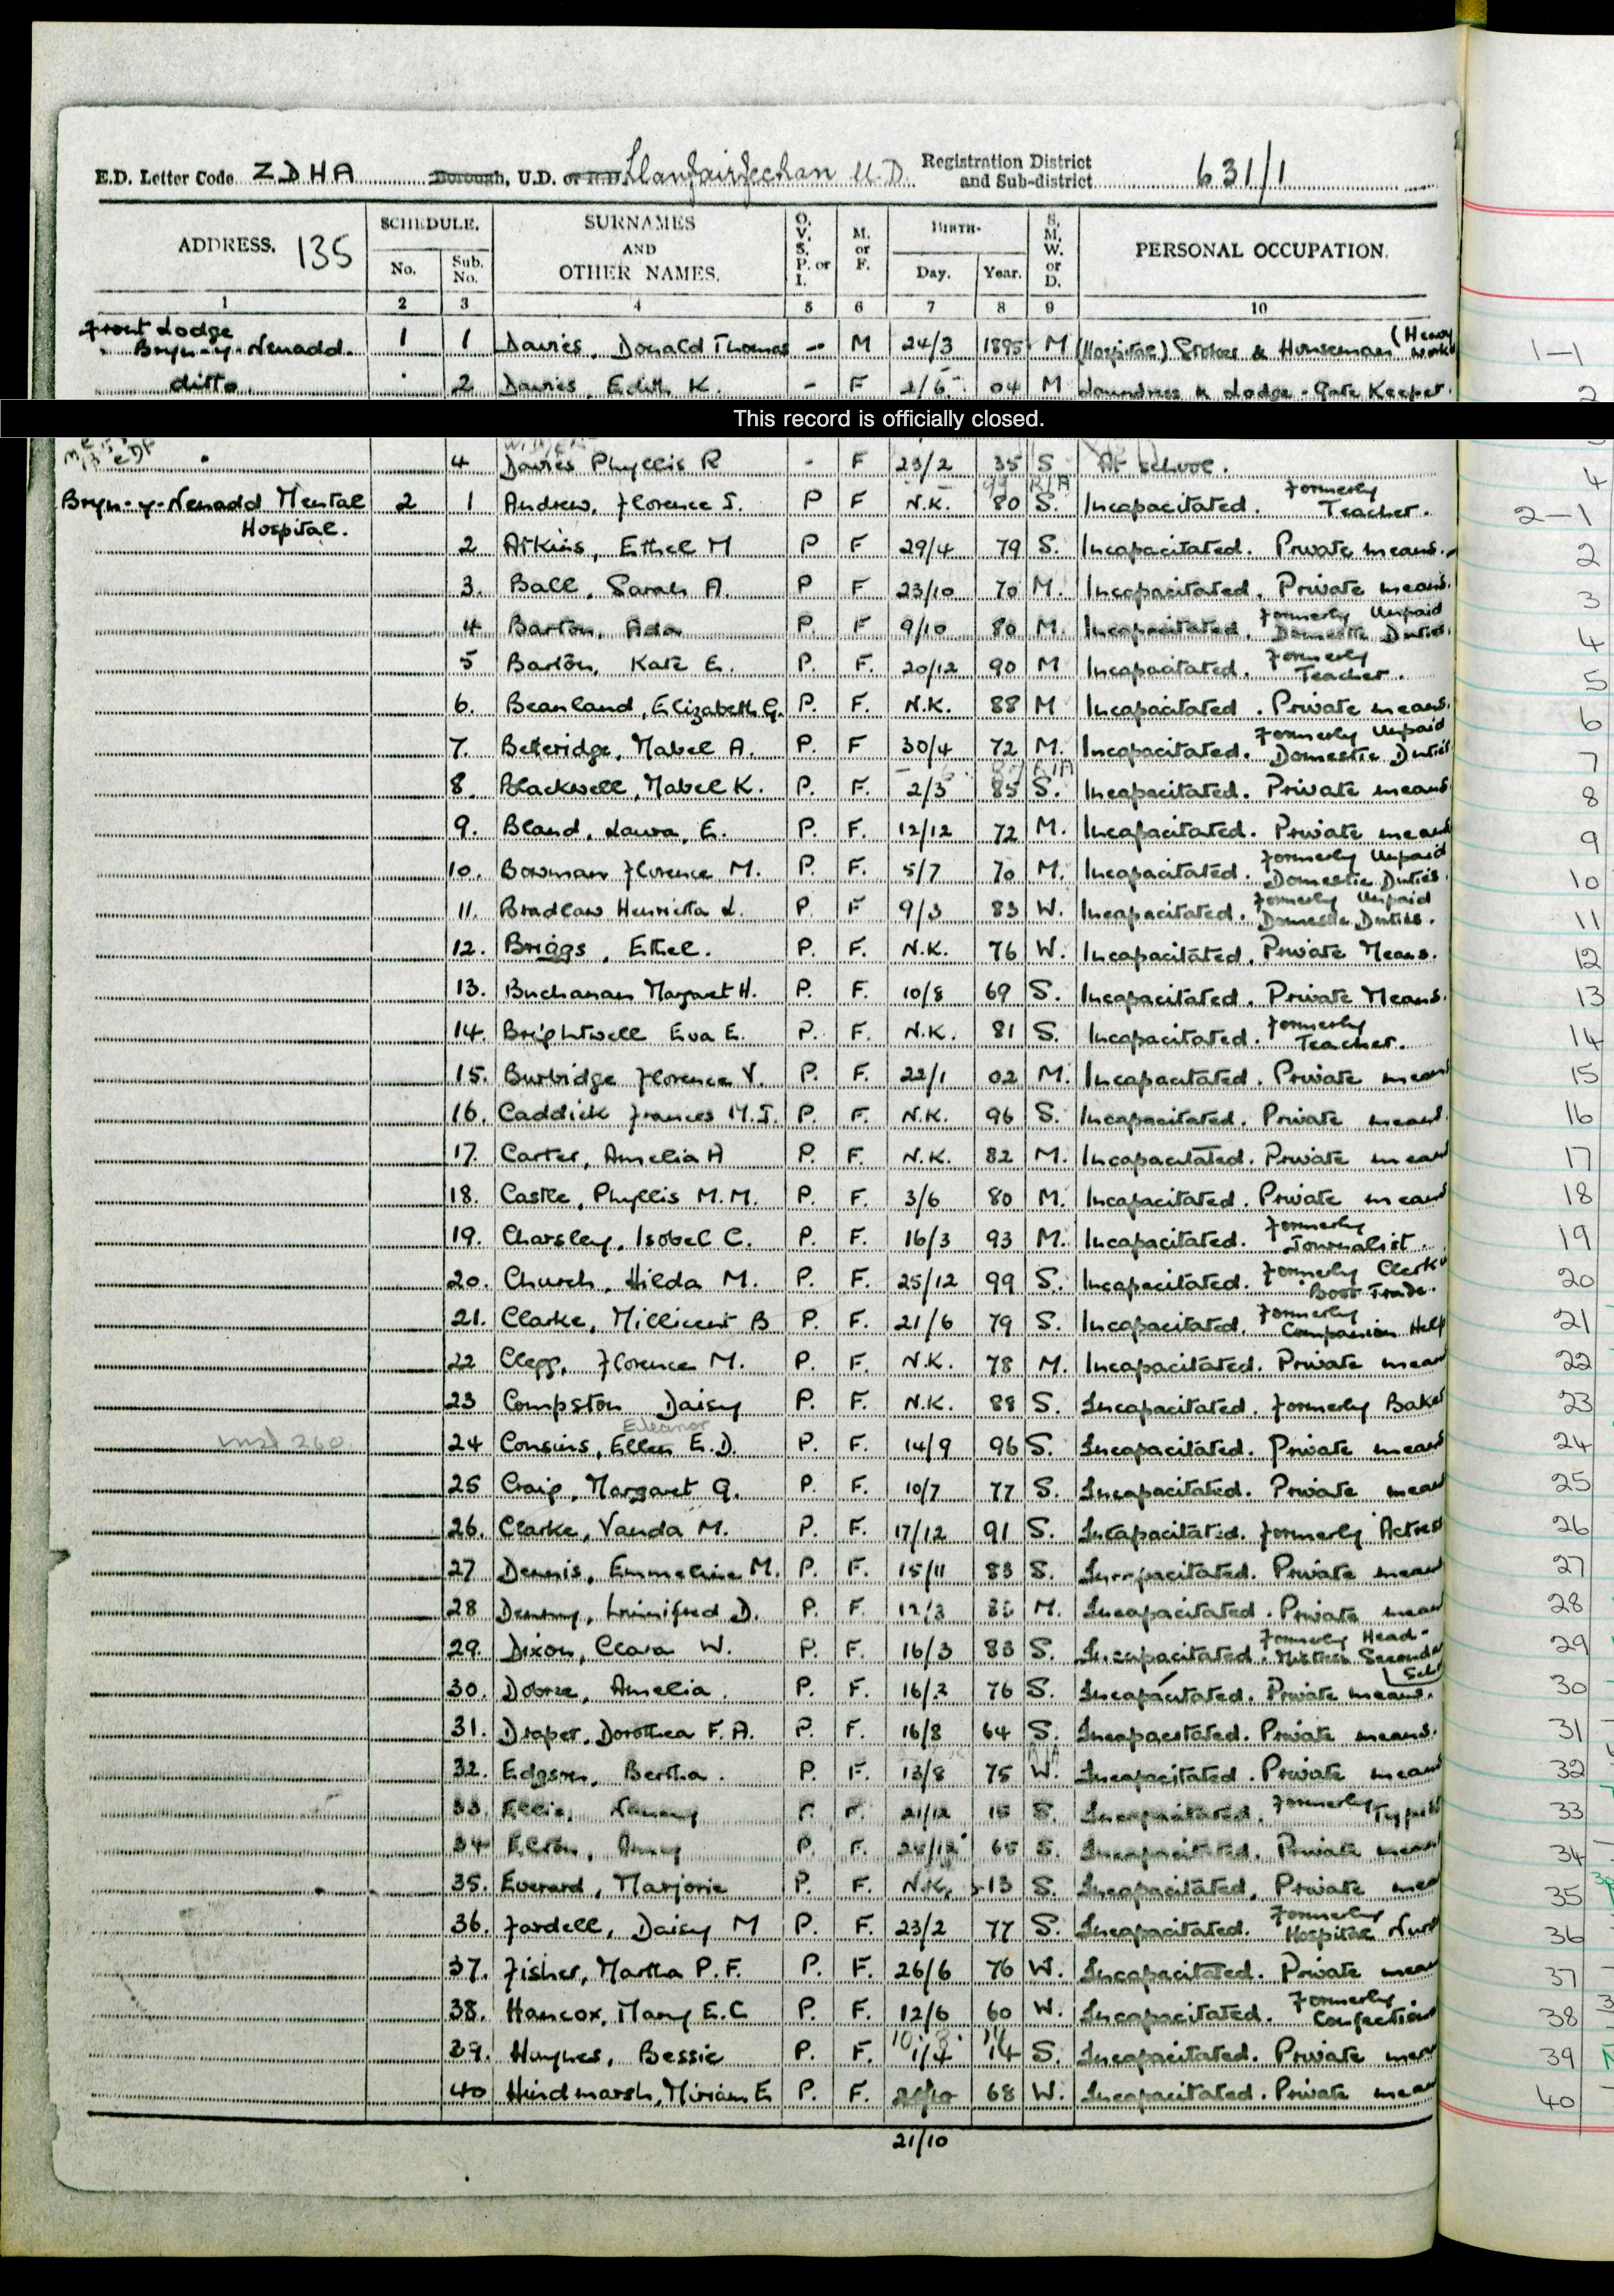 E.D. Letter Code ZDHA Borough, U.D. or R.D. Llanfairfechan U.D. Registration District and Sub-district 631/1
ADDRESS. 135 SCHEDULE. No. Sub. No. SURNAMES AND OTHER NAMES. O. V. S. P. or I. M. or F. BIRTH- Day. Year. S. M. W. or D. PERSONAL OCCUPATION.
1 2 3 4 5 6 7 8 9 10
Front Lodge Bryn-y-Nenadd. 1 1 Davies, Donald Thomas - M 24/3 1895 M (Hospital) Stoker & Horseman (Heavy Work) 1-1
ditto . 2 Davies, Edith K. - F 2/6 04 M Laundress & Lodge-Gate Keeper. 2
This record is officially closed.
4 Davies Phyllis R - F 23/2 35 S At school. 4
Bryn-y-Nenadd Mental Hospital. 2 1 Andrew, Florence I. P F N.K. 80 S. Incapacitated. Formerly Teacher. 2-1
2 Atkins, Ethel M P F 29/4 79 S. Incapacitated. Private means. 2
3. Ball, Sarah A. P F 23/10 70 M. Incapacitated. Private means. 3
4 Barton, Ada P. F 9/10 80 M. Incapacitated. Formerly Unpaid Domestic Duties. 4
5 Barton, Kate E. P. F. 20/12 90 M Incapacitated. Formerly Teacher. 5
6. Beanland, Elizabeth G. P. F. N.K. 88 M Incapacitated. Private means. 6
7. Betteridge, Mabel A. P. F 30/4 72 M. Incapacitated. Formerly Unpaid Domestic Duties 7
8. Blackwell, Mabel K. P. F. 2/3 85 S. Incapacitated. Private means 8
9. Bland, Laura, E. P. F. 12/12 72 M. Incapacitated. Private means 9
10. Bowman Florence M. P. F. 5/7 70 M. Incapacitated. Formerly Unpaid Domestic Duties. 10
11. Bradlaw Henrietta L. P. F 9/3 83 W. Incapacitated. Formerly Unpaid Domestic Duties. 11
12. Briggs, Ethel. P. F. N.K. 76 W. Incapacitated. Private Means. 12
13. Buchanan Margaret H. P. F. 10/8 69 S. Incapacitated. Private Means. 13
14. Brightwell Eva E. P. F. N.K. 81 S. Incapacitated. Formerly Teacher. 14
15. Burbidge Florence V. P. F. 22/1 02 M. Incapacitated. Private means 15
16. Caddick Frances M.I. P. F. N.K. 96 S. Incapacitated. Private means. 16
17. Carter, Amelia A P. F. N.K. 82 M. Incapacitated. Private means 17
18. Castle, Phyllis M.M. P. F. 3/6 80 M. Incapacitated. Private means 18
19. Charsley, Isobel C. P. F. 16/3 93 M. Incapacitated. Formerly Journalist. 19
20. Church, Hilda M. P. F. 25/12 99 S. Incapacitated. Formerly Clerk Boot Trade. 20
21. Clarke, Millicent B P. F. 21/6 79 S. Incapacitated. Formerly Companion Help 21
22 Clegg, Florence M. P. F. N.K. 78 M. Incapacitated. Private means 22
23 Compston Daisy P. F. N.K. 88 S. Incapacitated. Formerly Baker 23
24 Consins, Ellen Eleanor E.D. P. F. 14/9 96 S. Incapacitated. Private means 24
25 Craig, Margaret G. P. F. 10/7 77 S. Incapacitated. Private means 25
26. Clarke, Vanda M. P. F. 17/12 91 S. Incapacitated. Formerly Actress 26
27 Dennis, Emmeline M. P. F. 15/11 83 S. Incapacitated. Private means 27
28 Winifred D. P. F. 12/3 M. Incapacitated. Private means 28
29. Dixon, Clara W. P. F. 16/3 83 S. Incapacitated. Formerly Head-Mistress Seconda Sch 29
30. Dobree, Amelia. P. F. 16/2 76 S. Incapacitated. Private means. 30
31. Draper, Dorothea F.A. P. F. 16/8 64 S. Incapacitated. Private means. 31
32. Edgson, Bertha. P. F. 13/8 75 W. Incapacitated. Private means 32
33. Ellis, P. F. 21/12 15 S. Incapacitated. Formerly Typist 33
34 P. F. 65 S. Incapacitated. Private means 34
35. Everard, Marjorie P. F. N.K. 13 S. Incapacitated. Private mea 35
36. Fardell, Daisy M P. F. 23/2 77 S. Incapacitated. Formerly Hospital Nurs 36
37. Fisher, Martha P.F. P. F. 26/6 76 W. Incapacitated. Private mean 37
38. Hancox, Mary E.C P. F. 12/6 60 W. Incapacitated. Formerly Confection 38
39. Haynes, Bessie P. F. 1/4 14 S. Incapacitated. Private mea 39
40 Hindmarsh, Miriam E P. F. 68 W. Incapacitated. Private mean 40
21/10